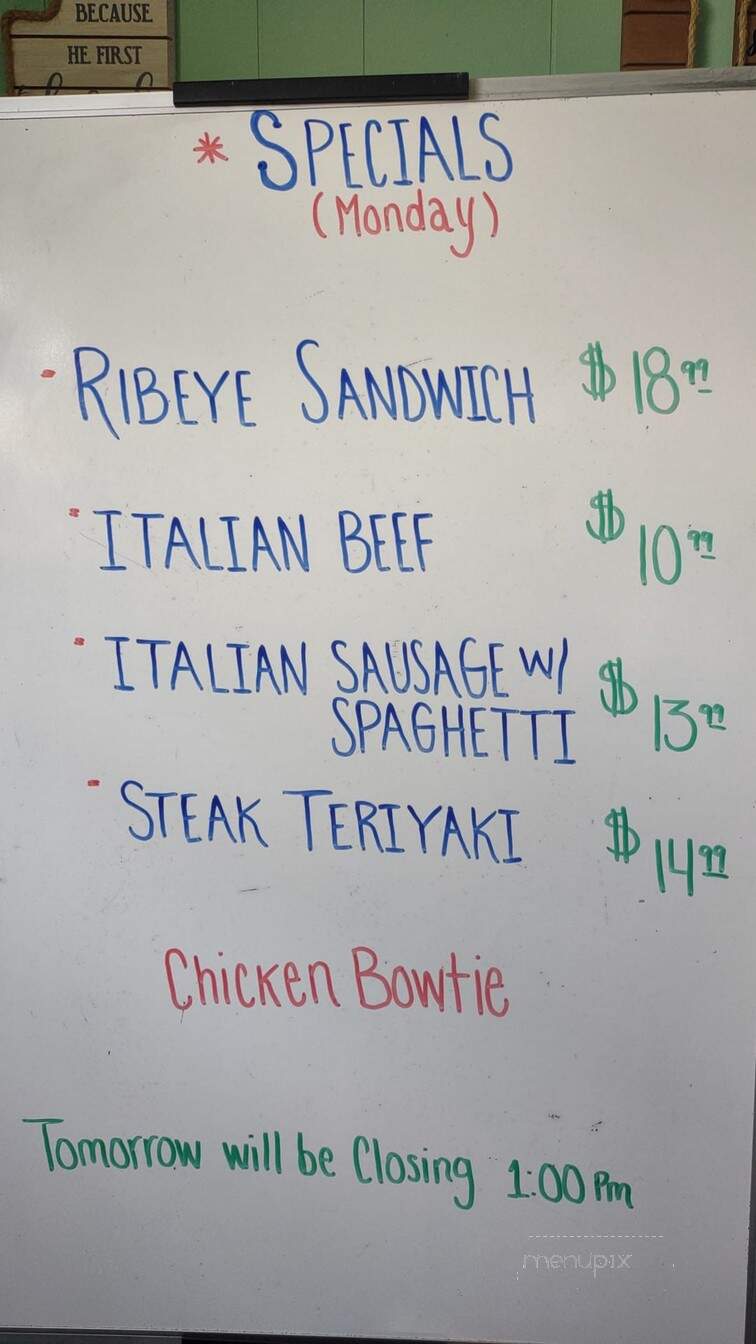 BECAUSE
HE FIRST
* SPECIALS
(Monday)
- RIBEYE SANDWICH $18.99
- ITALIAN BEEF $10.99
- ITALIAN SAUSAGE W/
SPAGHETTI $13.99
- STEAK TERIYAKI $14.99
Chicken Bowtie
Tomorrow will be Closing 1:00 Pm
menupix